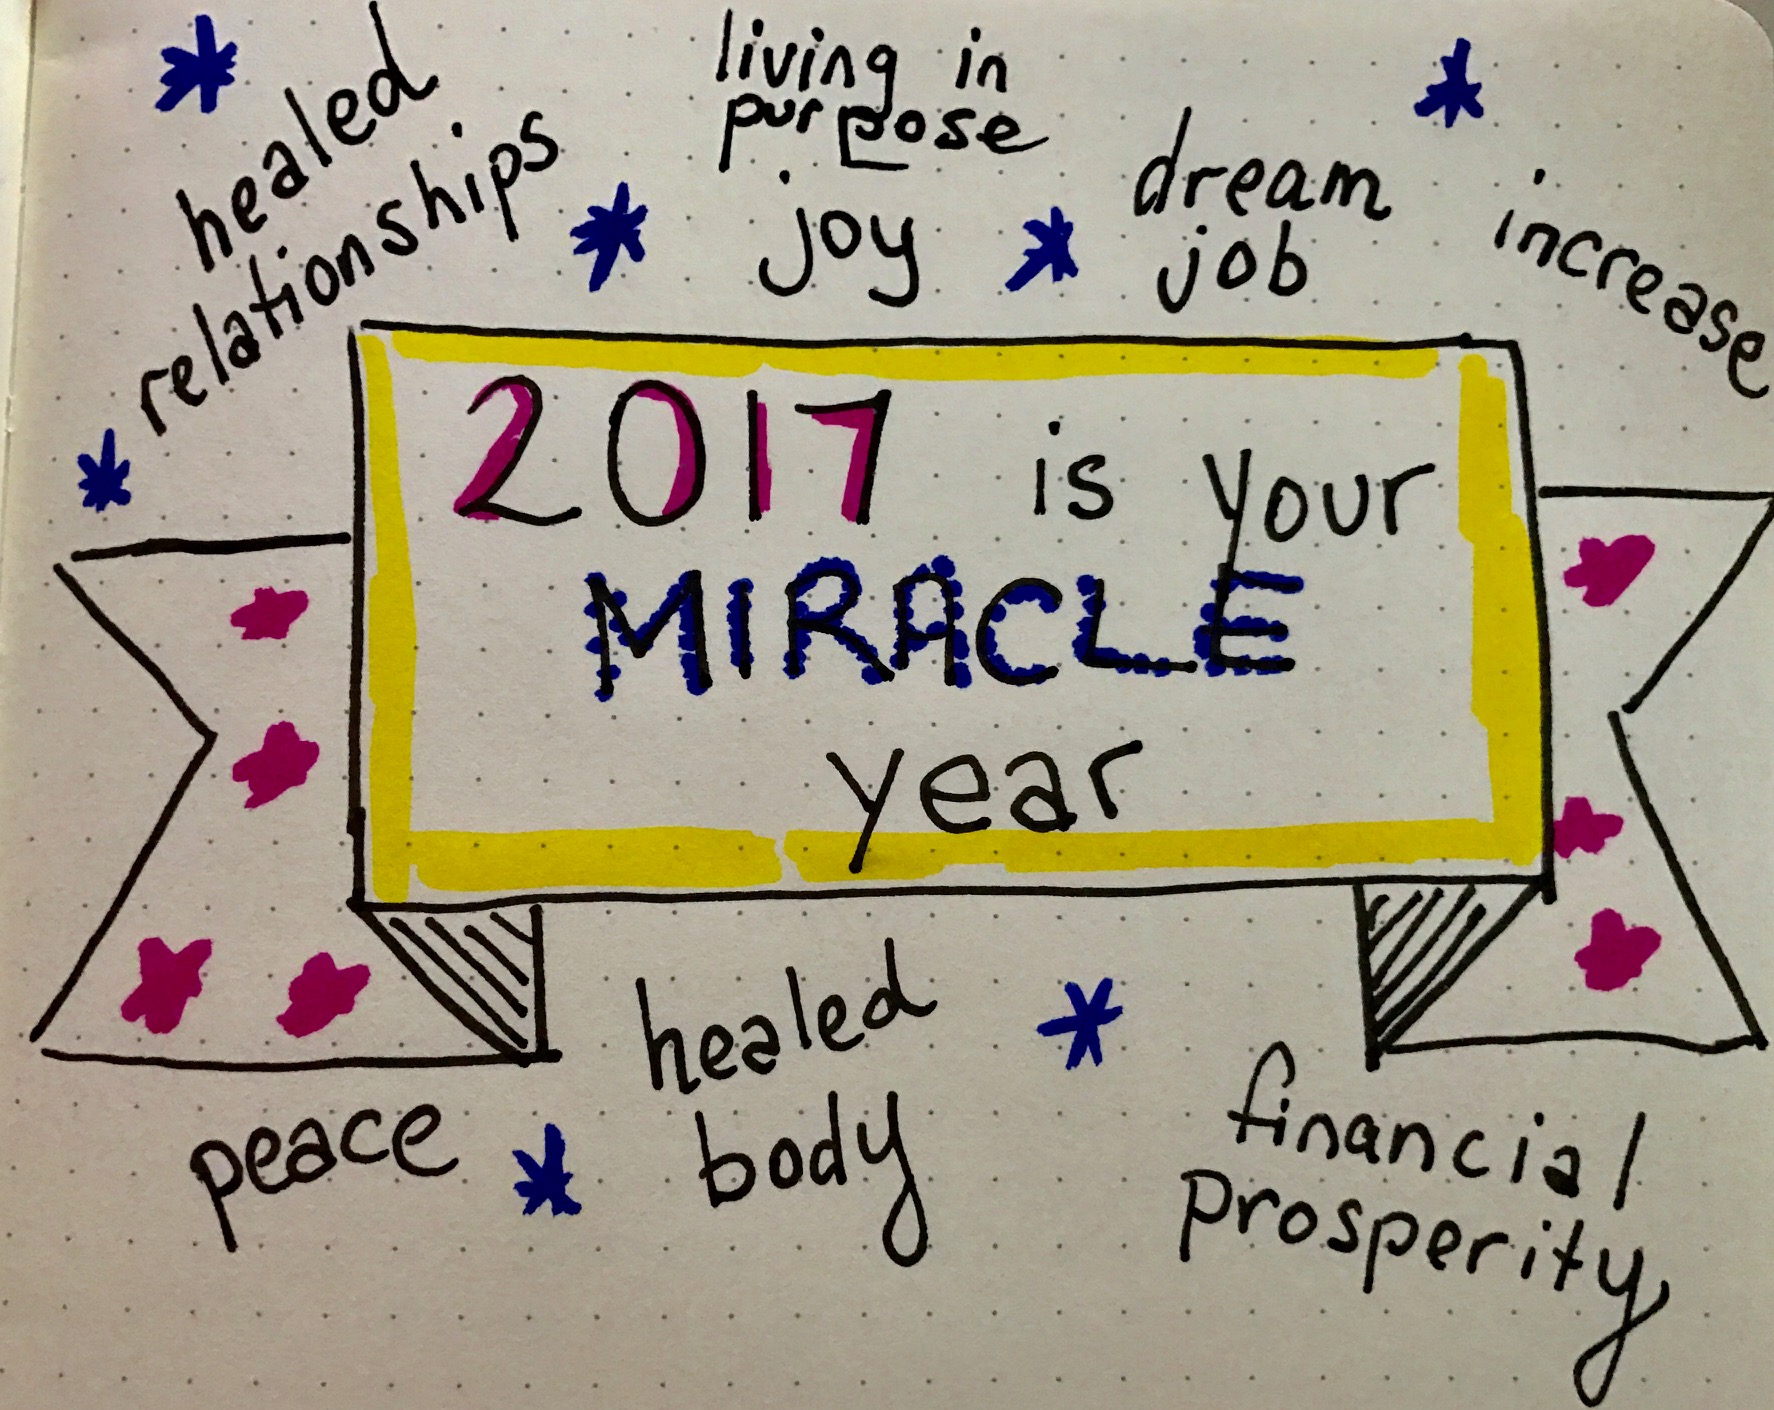 healed
relationships
living in
purpose
joy
dream
job
increase
2017 is your
MIRACLE
year
peace
healed
body
financial
prosperity